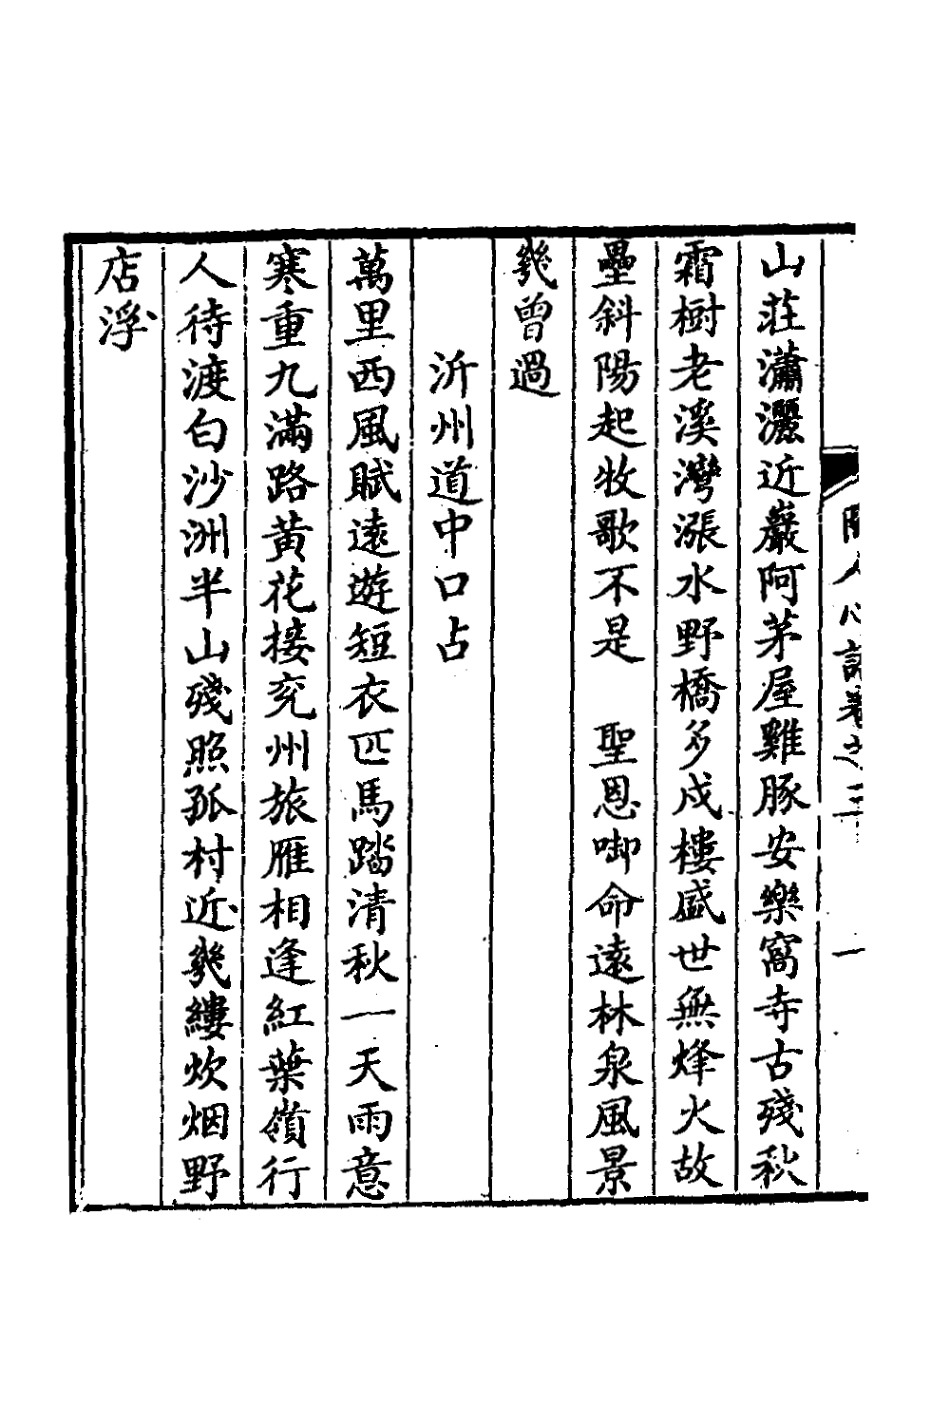 山莊瀟灑近巖阿茅屋雞豚安樂窩寺古殘秋
霜樹老溪灣漲水野橋多戍樓盛世無烽火故
壘斜陽起牧歌不是　聖恩啣命遠林泉風景
幾曾過
沂州道中口占
萬里西風賦遠遊短衣匹馬踏清秋一天雨意
寒重九滿路黃花接兖州旅雁相逢紅葉嶺行
人待渡白沙洲半山殘照孤村近幾縷炊烟野
店浮